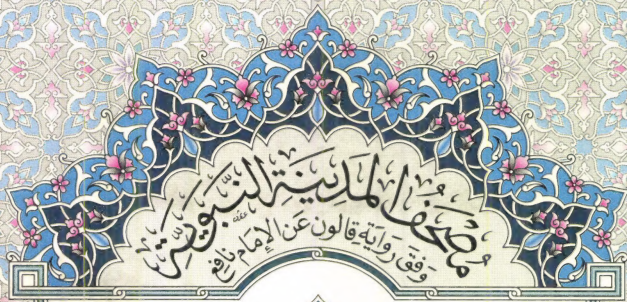 مُصْحَفُ المَدِينَةِ النَّبَوِيَّةِ
وَفْقَ رِوَايَةِ قَالُون عَنِ الإِمَامِ نَافِع